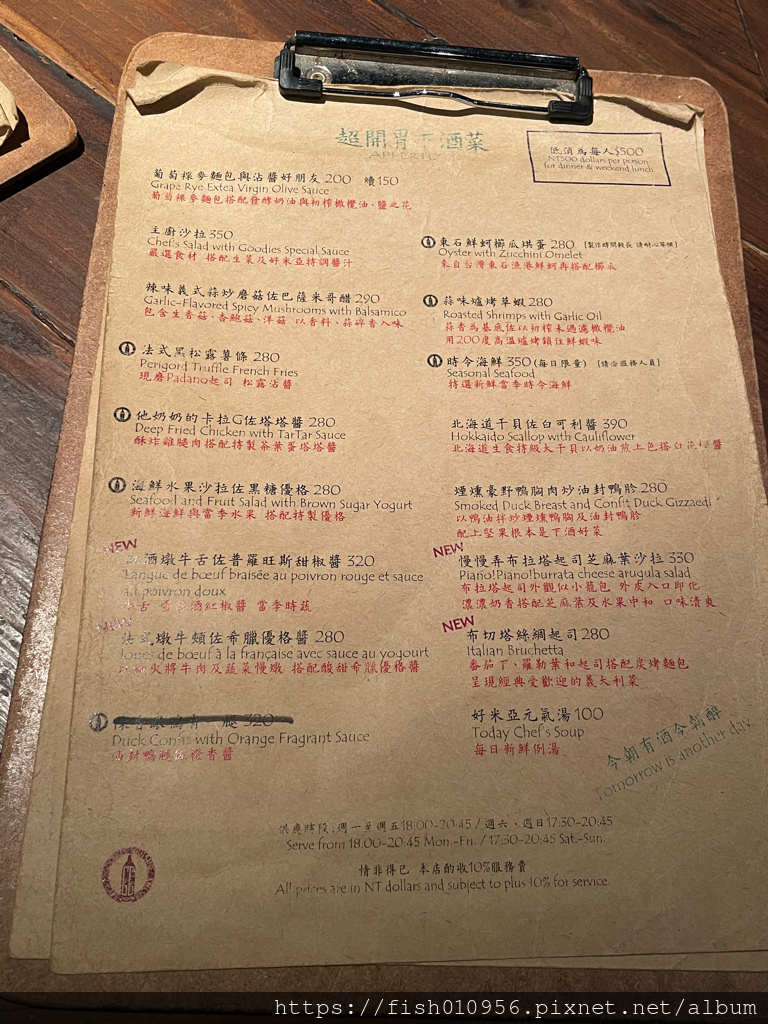 超開胃下酒菜
低消為每人$500
NT500 dollars per person
for dinner & weekend lunch
葡萄裸麥麵包與沾醬好朋友 200 續150
Grape Rye Extea Virgin Olive Sauce
葡萄裸麥麵包搭配發酵奶油與初榨橄欖油、鹽之花
主廚沙拉 350
Chef's Salad with Goodies Special Sauce
嚴選食材 搭配生菜及好米亞特調醬汁
辣味義式蒜炒磨菇佐巴薩米哥醋 290
Garlic-Flavored Spicy Mushrooms with Balsamico
包含生香菇、杏鮑菇、洋菇 以香料、蒜碎香入味
法式黑松露薯條 280
Perigord Truffle French Fries
現磨Padano起司 松露沾醬
他奶奶的卡拉G佐塔塔醬 280
Deep Fried Chicken with TarTar Sauce
酥炸雞腿肉搭配特製茶葉蛋塔塔醬
海鮮水果沙拉佐黑糖優格 280
Seafood and Fruit Salad with Brown Sugar Yogurt
新鮮海鮮與當季水果 搭配特製優格
NEW
酒燉牛舌佐普羅旺斯甜椒醬 320
Langue de bœuf braisée au poivron rouge et sauce
au poivron doux
牛舌 酒紅椒醬 當季時蔬
NEW
法式燉牛頰佐希臘優格醬 280
Joues de bœuf à la française avec sauce au yogourt
火將牛肉及蔬菜慢燉 搭配酸甜希臘優格醬
320
Duck Confit with Orange Fragrant Sauce
油封鴨腿佐橙香醬
東石鮮蚵櫛瓜烘蛋 280 [製作時間較長 請耐心等候]
Oyster with Zucchini Omelet
來自台灣東石漁港鮮蚵再搭配櫛瓜
蒜味爐烤草蝦 280
Roasted Shrimps with Garlic Oil
蒜香為基底佐以初榨未過濾橄欖油
用200度高溫爐烤鎖住鮮蝦味
時令海鮮 350 (每日限量) [請洽服務人員]
Seasonal Seafood
特選新鮮當季時令海鮮
北海道干貝佐白可利醬 390
Hokkaido Scallop with Cauliflower
北海道生食特級大干貝以奶油煎上色搭白花椰醬
煙燻豪野鴨胸肉炒油封鴨胗 280
Smoked Duck Breast and Confit Duck Gizzaedi
以鴨油拌炒煙燻鴨胸及油封鴨胗
配上堅果根本是下酒好菜
NEW
慢慢弄布拉塔起司芝麻葉沙拉 330
Piano!Piano!burrata cheese arugula salad
布拉塔起司外觀似小籠包 外皮入口即化
濃濃奶香搭配芝麻葉及水果中和 口味清爽
NEW
布切塔絲綢起司 280
Italian Bruchetta
番茄丁、羅勒葉和起司搭配炭烤麵包
呈現經典受歡迎的義大利菜
好米亞元氣湯 100
Today Chef's Soup
每日新鮮例湯
今朝有酒今朝醉
Tomorrow is another day
供應時段:週一至週五18:00-20:45 / 週六、週日17:30-20:45
Serve from 18:00-20:45 Mon.-Fri. / 17:30-20:45 Sat.-Sun.
情非得已 本店酌收10%服務費
All prices are in NT dollars and subject to plus 10% for service.
https://fish010956.pixnet.net/album